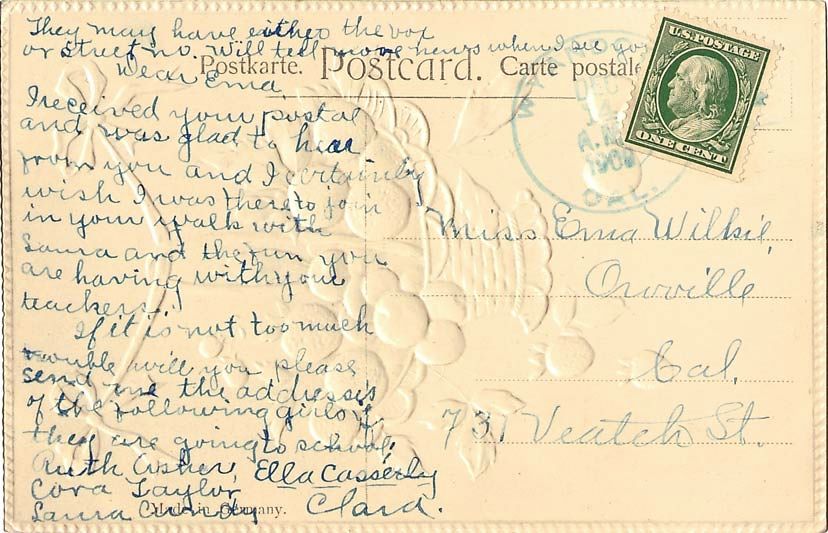 They may have either the box
or street no. Will tell more news when I see you
Postkarte. Postcard. Carte postale
U.S. POSTAGE
ONE CENT
DEC
A.M.
1909
CAL.
Dear Ema,
I received your postal
and was glad to hear
from you and I certainly
wish I was there to join
in your walk with
Laura and the fun you
are having with your
teacher.
If it is not too much
trouble will you please
send me the addresses
of the following girls if
they are going to school,
Ruth Usher, Ella Casserly
Cora Taylor,
Laura Cundy
Clara.
Made in Germany.
Miss Ema Wilkie,
Oroville
Cal.
731 Veatch St.